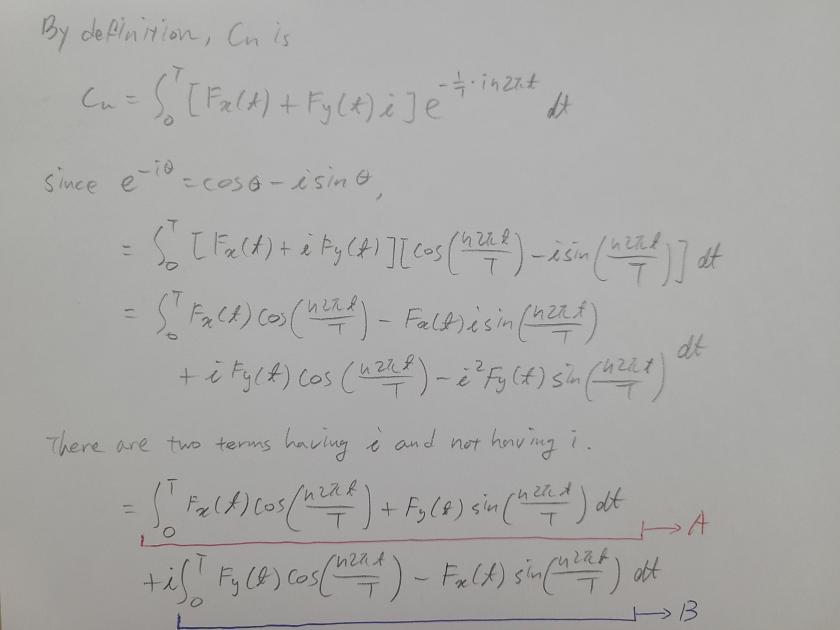 By definition, Cn is
Cn = ∫₀ᵀ [Fx(t) + Fy(t) i] e^(-1/T · in2πt) dt
since e^(-iθ) = cosθ - i sinθ,
= ∫₀ᵀ [Fx(t) + i Fy(t)][cos(n2πt/T) - i sin(n2πt/T)] dt
= ∫₀ᵀ Fx(t) cos(n2πt/T) - Fx(t) i sin(n2πt/T)
+ i Fy(t) cos(n2πt/T) - i² Fy(t) sin(n2πt/T) dt
There are two terms having i and not having i.
= ∫₀ᵀ Fx(t) cos(n2πt/T) + Fy(t) sin(n2πt/T) dt → A
+ i ∫₀ᵀ Fy(t) cos(n2πt/T) - Fx(t) sin(n2πt/T) dt → B